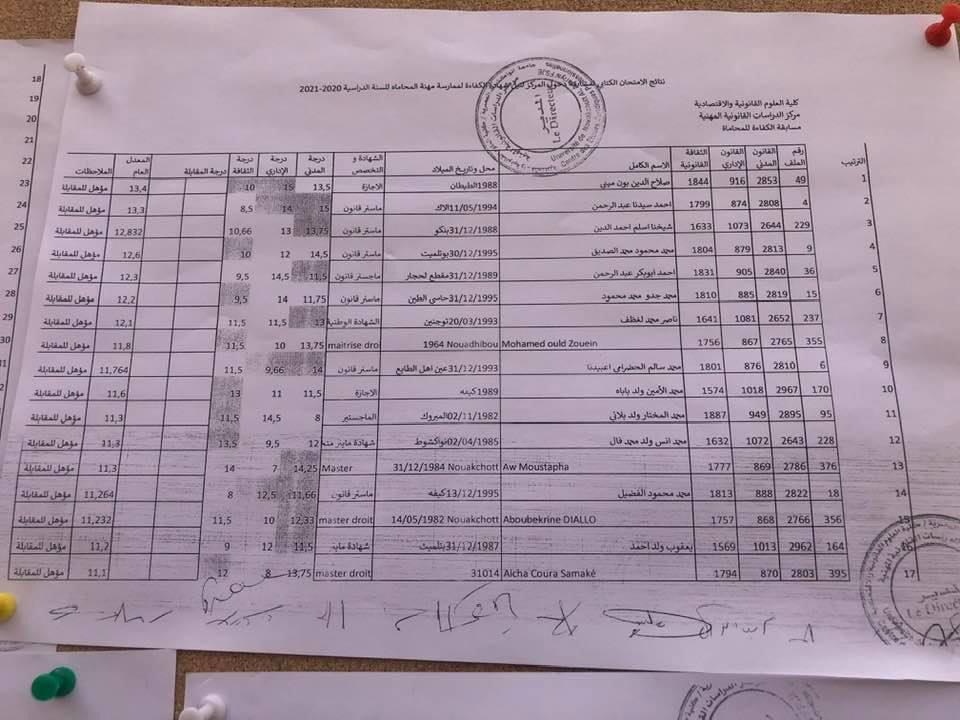 نتائج الامتحان الكتابي لمسابقة دخول المركز لنيل شهادة الكفاءة لممارسة مهنة المحاماه للسنة الدراسية 2020-2021
كلية العلوم القانونية والاقتصادية
مركز الدراسات القانونية المهنية
مسابقة الكفاءة للمحاماة
Le Directeur
الترتيب رقم الملف القانون المدني القانون الإداري الثقافة القانونية الاسم الكامل محل وتاريخ الميلاد الشهادة و التخصص درجة المدني درجة الإداري درجة الثقافة درجة المقابلة المعدل العام الملاحظات
1 49 2853 916 1844 صلاح الدين بون ميني 1988الطينطان الاجازة 13,5 15 10 13,4 مؤهل للمقابلة
2 4 2808 874 1799 احمد سيدنا عبد الرحمن 11/05/1994الاك ماستر قانون 15 14 8,5 13,3 مؤهل للمقابلة
3 229 2644 1073 1633 شيخنا اسلم احمد الدين 31/12/1988بنكو ماستر قانون 13,75 13 10,66 12,832 مؤهل للمقابلة
4 9 2813 879 1804 محمد محمود محمد الصديق 30/12/1995بوتلميت ماستر قانون 14,5 12 10 12,6 مؤهل للمقابلة
5 36 2840 905 1831 احمد ابوبكر عبد الرحمن 31/12/1989مقطع لحجار ماجستر قانون 11,5 14,5 9,5 12,3 مؤهل للمقابلة
6 15 2819 885 1810 محمد جدو محمد محمود 31/12/1995حاسي الطين ماستر قانون 11,75 14 9,5 12,2 مؤهل للمقابلة
7 237 2652 1081 1641 ناصر محمد لغظف 20/03/1993توجنين الشهادة الوطنية 13 11,5 11,5 12,1 مؤهل للمقابلة
8 355 2765 867 1756 Mohamed ould Zouein 1964 Nouadhibou maitrise dro 13,75 10 11,5 11,8 مؤهل للمقابلة
9 6 2810 876 1801 محمد سالم الحضرامي اعبيدنا 31/12/1993عين اهل الطايع ماستر قانون 14 9,66 11,5 11,764 مؤهل للمقابلة
10 170 2967 1018 1574 محمد الأمين ولد باباه 1989كيفه الاجازة 11,5 11 13 11,6 مؤهل للمقابلة
11 95 2895 949 1887 محمد المختار ولد بلاتي 02/11/1982المبروك الماجستير 8 14,5 11,5 11,3 مؤهل للمقابلة
12 228 2643 1072 1632 محمد انس ولد محمد فال 02/04/1985نواكشوط شهادة ماستر 12 9,5 13,5 11,3 مؤهل للمقابلة
13 376 2786 869 1777 Aw Moustapha 31/12/1984 Nouakchott Master 14,25 7 14 11,3 مؤهل للمقابلة
14 18 2822 888 1813 محمد محمود الفضيل 13/12/1995كيفه ماستر قانون 11,66 12,5 8 11,264 مؤهل للمقابلة
15 356 2766 868 1757 Aboubekrine DIALLO 14/05/1982 Nouakchott master droit 12,33 10 11,5 11,232 مؤهل للمقابلة
16 164 2962 1013 1569 يعقوب ولد احمد 31/12/1987بتلميت شهادة 11,5 12 9 11,2 مؤهل للمقابلة
17 395 2803 870 1794 Aicha Coura Samaké 31014 master droit 13,75 8 12 11,1 مؤهل للمقابلة
18
19
20
21
22
23
24
25
26
27
28
29
30
31